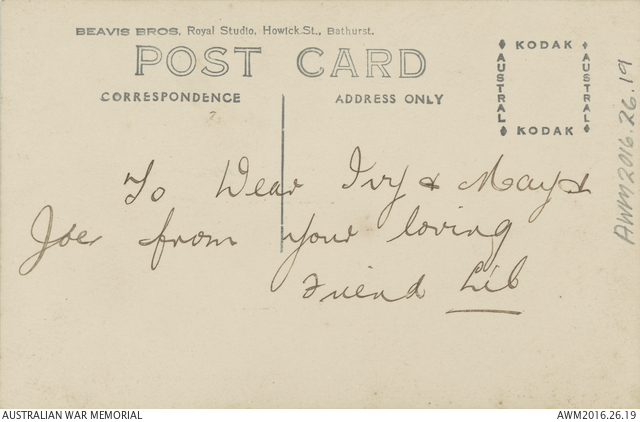 BEAVIS BROS. Royal Studio, Howick St., Bathurst.
POST CARD
CORRESPONDENCE
ADDRESS ONLY
KODAK
AUSTRAL
AUSTRAL
KODAK
To Dear Ivy & May &
Joe from your loving
Friend Lil
AWM2016.26.19
AUSTRALIAN WAR MEMORIAL
AWM2016.26.19